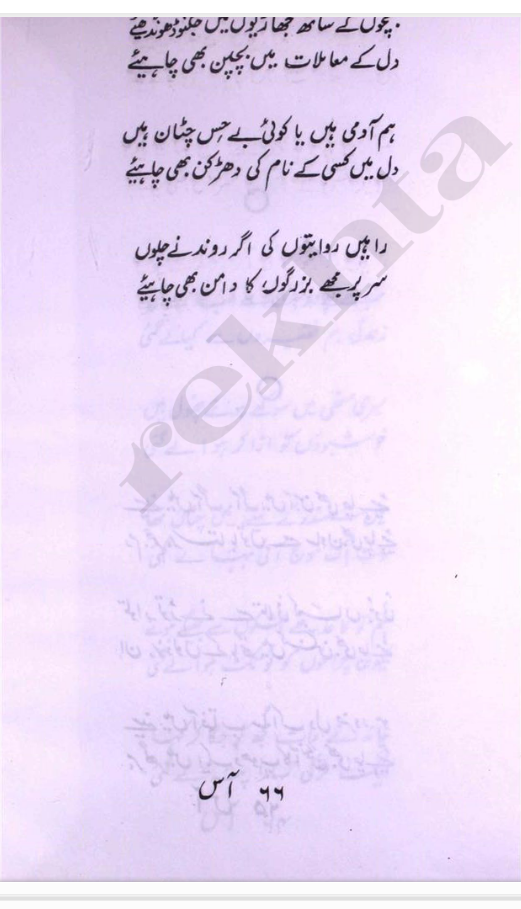 بچوں کے ساتھ جھاڑیوں میں جگنو ڈھونڈھیئے
دل کے معاملات میں بچپن بھی چاہیئے
ہم آدمی ہیں یا کوئی بے حِس چٹان ہیں
دل میں کسی کے نام کی دھڑکن بھی چاہیئے
راہیں روایتوں کی اگر روندنے چلوں
سر پر مجھے بزرگوں کا دامن بھی چاہیئے
rekhta
۶۶ آس